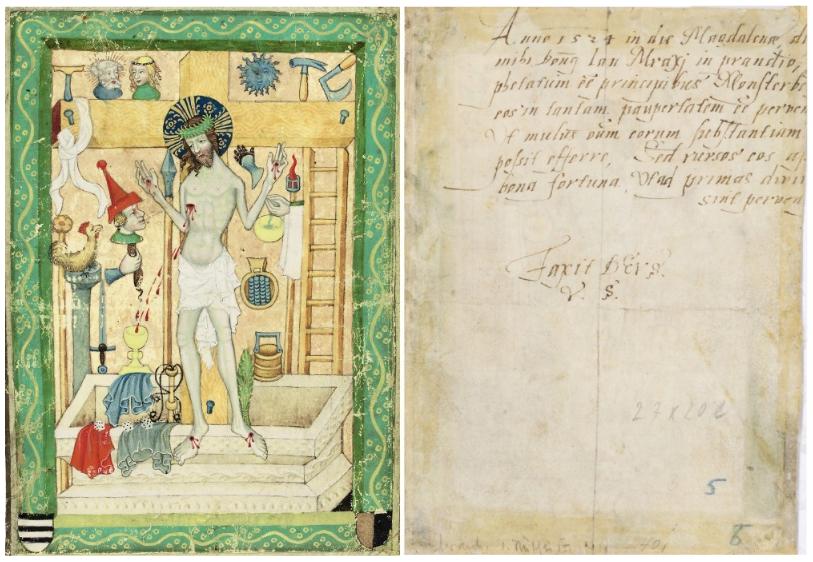 Anno 1524 in die Magdalenæ di
mihi bonus Ian Mraxj in prandio,
phetatum ee principibus Monsterbe
eos in tantam paupertatem ee perven
Vt mulus ouim eorum substantium
possit efferre, Sed rursos eos ap
bona fortuna, Vt ad primas divi
sint perven
Faxit DEVS.
V. S.
27 x 20 2
5
6